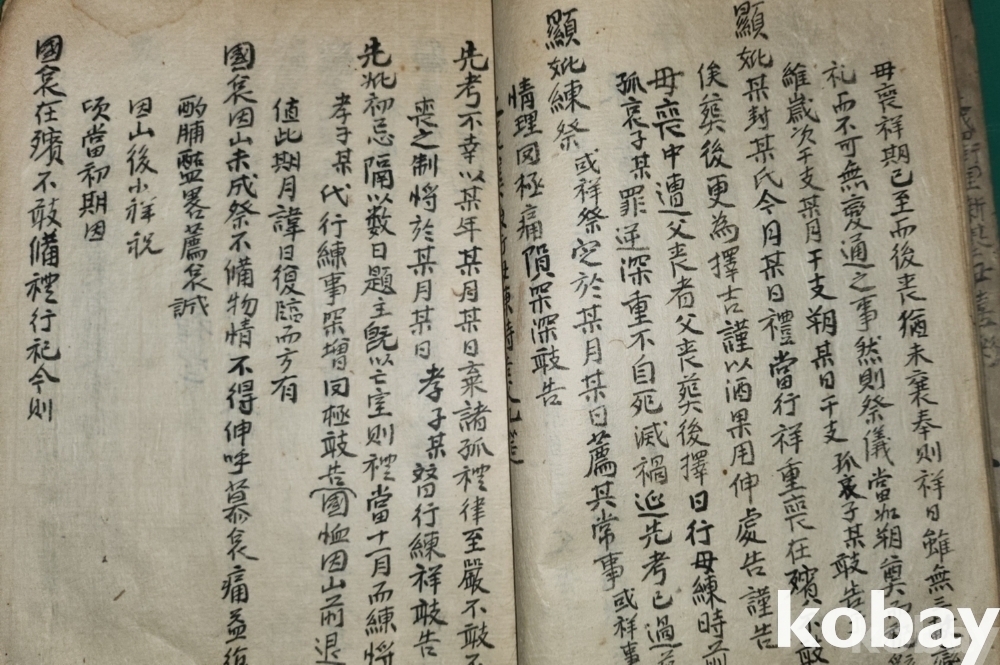 母喪祥期已至而後喪猶未襄奉則祥日雖無
礼而不可無變通之事然則祭儀當如朔奠
維歲次干支某月干支朔某日干支 孤哀子某敢告
顯妣某封某氏今月某日禮當行祥重喪在殯 敢
俟葬後更為擇吉謹以酒果用伸處告謹告
母喪中遭父喪者父喪葬後擇日行母練時前
孤哀子某罪逆深重不自死滅禍延先考已過
顯妣練祭 或祥祭 定於某月某日薦其常事 或祥事
情理罔極痛隕罙深敢告
先考不幸以某年某月某日棄諸孤禮律至嚴不敢
喪之制將於某月某日 孝子某 行練祥敢告
先妣初忌隔以數日題主旣以亡室則禮當十一月而練將
孝子某 代行練事罙增罔極敢告 國恤因山前退
值此期月諱日復臨而方有
國哀因山未成祭不備物情不得伸呼慕哀痛益
酌脯醢畧薦哀誠
因山後小祥祝
頃當初期因
國哀在殯不敢備禮行祀今則
kobay